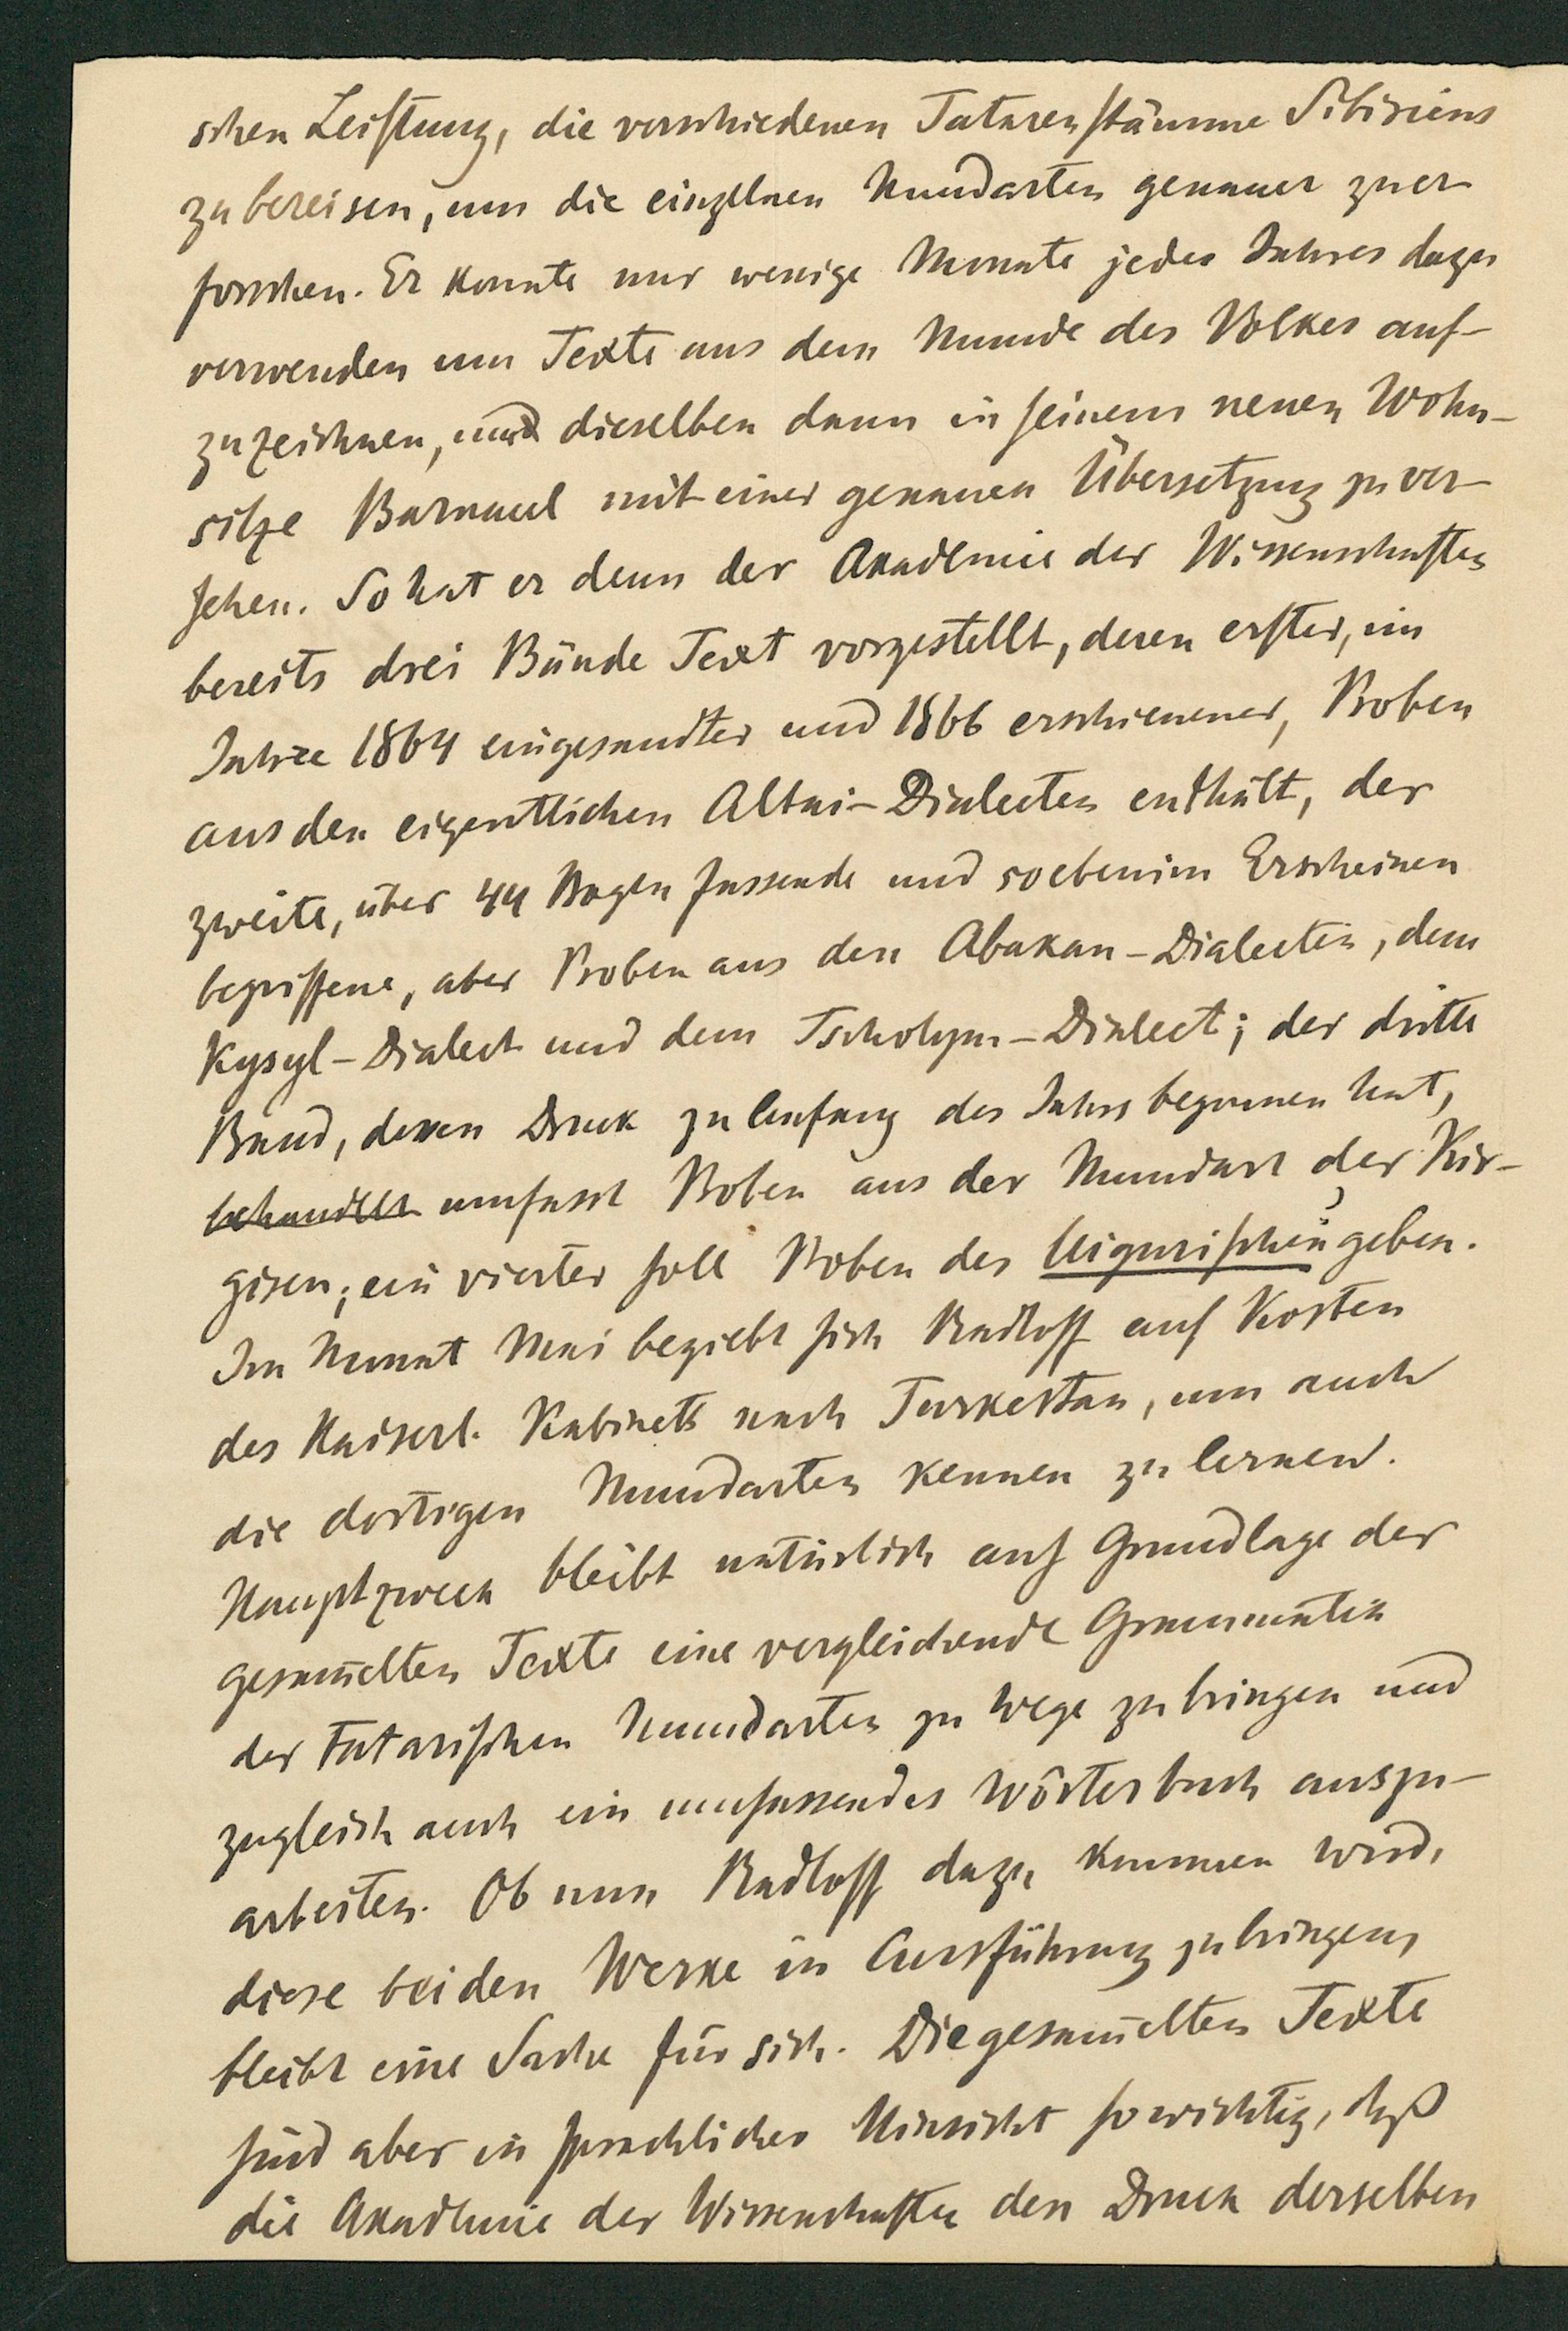 schen Leistung, die verschiedenen Tatarenstämme Sibiriens
zu bereisen, um die einzelnen Mundarten genauer zu er-
forschen. Er konnte nur wenige Monate jedes Jahres dazu
verwenden um Texte aus dem Munde des Volkes auf-
zuzeichnen, und dieselben dann in seinem neuen Wohn-
sitze Barnaul mit einer genauen Übersetzung zu ver-
sehen. So hat er denn der Akademie der Wissenschaften
bereits drei Bände Text vorgestellt, deren erster, im
Jahre 1864 eingesandter und 1866 erschienener, Proben
aus den eigentlichen Altai-Dialecten enthält, der
zweite, über 44 Bogen fassende und soeben im Erscheinen
begriffene, aber Proben aus den Abakan-Dialecten, dem
Kysyl-Dialect und dem Tscholym-Dialect; der dritte
Band, dessen Druck zu Anfang des Jahrs begonnen hat,
behandelt umfasst Proben aus der Mundart der Kir-
gisen; ein vierter soll Proben des Uigurischen geben.
Im Monat Mai begiebt sich Radloff auf Kosten
des Kaiserl. Kabinets nach Turkestan, um auch
die dortigen Mundarten kennen zu lernen.
Hauptzweck bleibt natürlich auf Grundlage der
gesam̄elten Texte eine vergleichende Grammatik
der Tatarischen Mundarten zu Wege zu bringen und
zugleich auch ein umfassendes Wörterbuch auszu-
arbeiten. Ob nun Radloff dazu kommen wird,
diese beiden Werke in Ausführung zu bringen,
bleibt eine Sache für sich. Die gesam̄elten Texte
sind aber in sprachlicher Hinsicht so wichtig, daß
die Akademie der Wissenschaften den Druck derselben